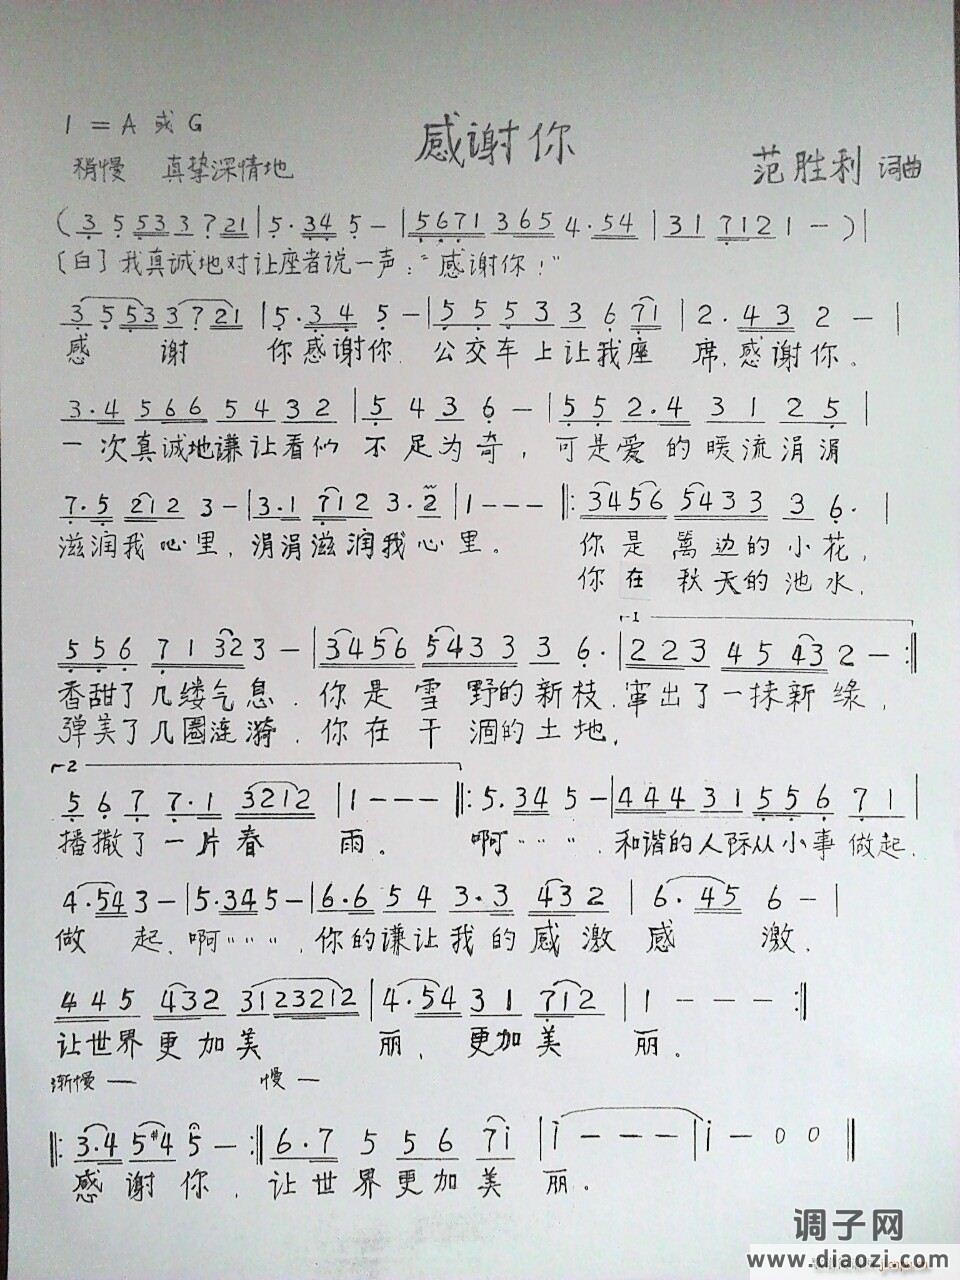 1=A或G
感谢你
稍慢 真挚深情地
范胜利 词曲
(3 5 53 3 7 21|5·34 5-|5671 365 4·54|31 712 1-)|
[白]我真诚地对让座者说一声："感谢你！"
3 5 53 3 7 21|5·34 5-|5 5 5 3 3 6 71|2·43 2-|
感 谢 你感谢你.公交车上让我座 席,感谢你。
3·4 566 54 32|5 4 3 6-|5 5 2·4 3 1 2 5|
一次真诚地谦让看似不足为奇,可是爱的暖流涓涓
7·5 212 3-|3·1 712 3·2|1---‖:3456 5433 3 6·|
滋润我心里,涓涓滋润我心里。 你是篱边的小花,
你在秋天的池水,
1
5 5 6 71323-|3456 5433 3 6·|223 45432-:‖
香甜了几缕气息.你是雪野的新枝,窜出了一抹新绿,
弹美了几圈涟漪.你在干涸的土地,
2
5 6 7 7·1 3212|1---‖:5·34 5-|444 31 556 71|
播撒了一片春 雨。 啊〃〃〃,和谐的人际从小事做起.
4·54 3-|5·345-|6·6 54 3·3 432|6·45 6-|
做 起,啊〃〃〃,你的谦让我的感激感 激.
445 432 3123212|4·54 31 712|1---:‖
让世界更加美 丽,更加美 丽。
渐慢— 慢—
‖:3·4 5#4 5-:‖6·7 5 5 6 7i|i---|i-00‖
感谢你,让世界更加美丽。
调子网
www.diaozi.com